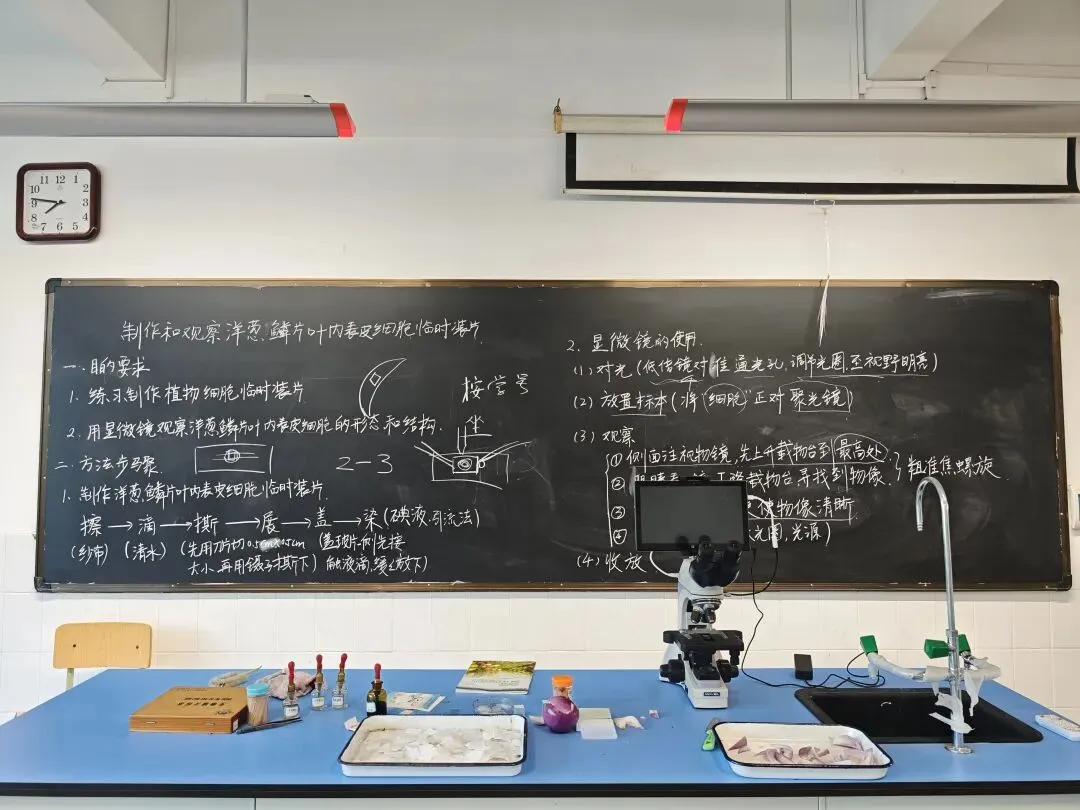 制作和观察洋葱鳞片叶内表皮细胞临时装片.
一.目的要求
1. 练习制作植物细胞临时装片
2. 用显微镜观察洋葱鳞片叶内表皮细胞的形态和结构.
二.方法步骤.
1. 制作洋葱鳞片叶内表皮细胞临时装片.
擦→滴→撕→展→盖→染(碘液.引流法)
(纱布) (清水) (先用刀片切0.5cm×0.5cm (盖玻片一侧先接
大小.再用镊子撕下) 触液滴,缓缓放下)
按学号
坐
2-3
2. 显微镜的使用.
(1) 对光(低倍镜对准通光孔,调节光圈,至视野明亮)
(2) 放置标本(将"细胞"正对聚光镜)
(3) 观察
① 侧面注视物镜,先上升载物台到最高处.
② 载物台寻找到物像. 粗准焦螺旋
③ 使物像清晰.
④ 光圈,光源)
(4) 收放
11 12 1
10 2
9 3
8 4
7 6 5